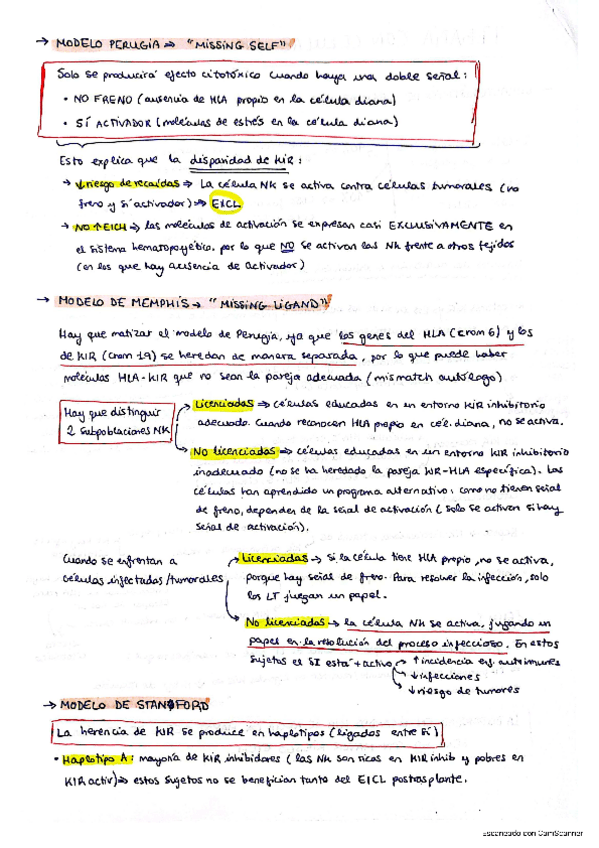 → MODELO PERUGIA ⇒ "MISSING SELF"
Solo se producirá efecto citotóxico cuando haya una doble señal:
• NO FRENO (ausencia de HLA propio en la célula diana)
• SÍ ACTIVADOR (moléculas de estrés en la célula diana)
Esto explica que la disparidad de KIR:
→ ↓riesgo de recaídas ⇒ La célula NK se activa contra células tumorales (no
freno y sí activador) ⇒ EICL
→ NO ↑EICH ⇒ las moléculas de activación se expresan casi EXCLUSIVAMENTE en
el sistema hematopoyético, por lo que NO se activan las NK frente a otros tejidos
(en los que hay ausencia de Activador)
→ MODELO DE MEMPHIS → "MISSING LIGAND"
Hay que matizar el modelo de Perugia, ya que los genes del HLA (crom 6) y los
de KIR (crom 19) se heredan de manera separada, por lo que puede haber
moléculas HLA-KIR que no sean la pareja adecuada (mismatch autólogo)
Hay que distinguir
2 subpoblaciones NK
Licenciadas ⇒ células educadas en un entorno KIR inhibitorio
adecuado. Cuando reconocen HLA propio en cél. diana, no se activa.
No licenciadas ⇒ células educadas en un entorno KIR inhibitorio
inadecuado (no se ha heredado la pareja KIR-HLA específica). Las
células han aprendido un programa alternativo: como no tienen señal
de freno, dependen de la señal de activación (solo se activan si hay
señal de activación).
Cuando se enfrentan a
células infectadas/tumorales
Licenciadas → Si la célula tiene HLA propio, no se activa,
porque hay señal de freno. Para resolver la infección, solo
los LT juegan un papel.
No licenciadas → la célula NK se activa, jugando un
papel en la resolución del proceso infeccioso. En estos
sujetos el SI está + activo → ↑ incidencia enf. autoinmunes
↓ infecciones
↓ riesgo de tumores
→ MODELO DE STANFORD
La herencia de KIR se produce en haplotipos (ligados entre sí)
• Haplotipo A: mayoría de KIR inhibidores (las NK son ricas en KIR inhib y pobres en
KIR activ) ⇒ estos sujetos no se benefician tanto del EICL postrasplante.
Escaneado con CamScanner